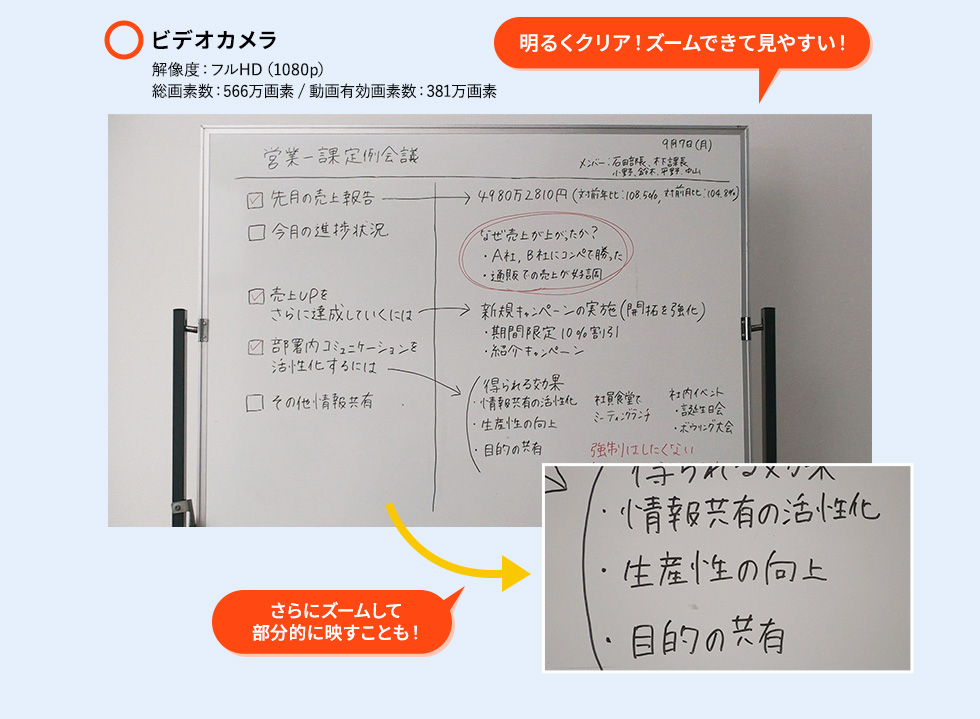 ビデオカメラ
解像度：フルHD（1080p）
総画素数：566万画素 / 動画有効画素数：381万画素
明るくクリア！ズームできて見やすい！
営業一課定例会議
9月7日(月)
メンバー：石田部長、木下課長
小野、鈴木、平野、中山
先月の売上報告
4980万2810円(対前年比：108.5%, 対前月比：104.8%)
今月の進捗状況
なぜ売上が上がったか？
・A社，B社にコンペで勝った
・通販での売上が好調
売上UPを
さらに達成していくには
新規キャンペーンの実施(開拓を強化)
・期間限定10%割引
・紹介キャンペーン
部署内コミュニケーションを
活性化するには
得られる効果
・情報共有の活性化
・生産性の向上
・目的の共有
社員食堂で
ミーティングランチ
社内イベント
・誕生日会
・ボウリング大会
強制はしたくない
その他情報共有
得られる効果
・情報共有の活性化
・生産性の向上
・目的の共有
さらにズームして
部分的に映すことも！